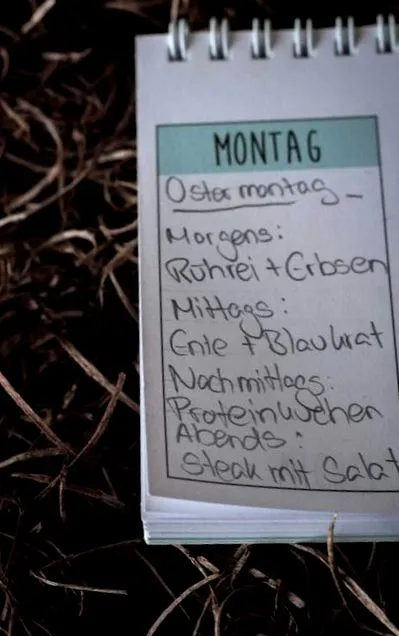 MONTAG
Ostermontag –
Morgens:
Rührei + Erbsen
Mittags:
Ente + Blaukrat
Nachmittags:
Proteinkuchen
Abends:
Steak mit Salat